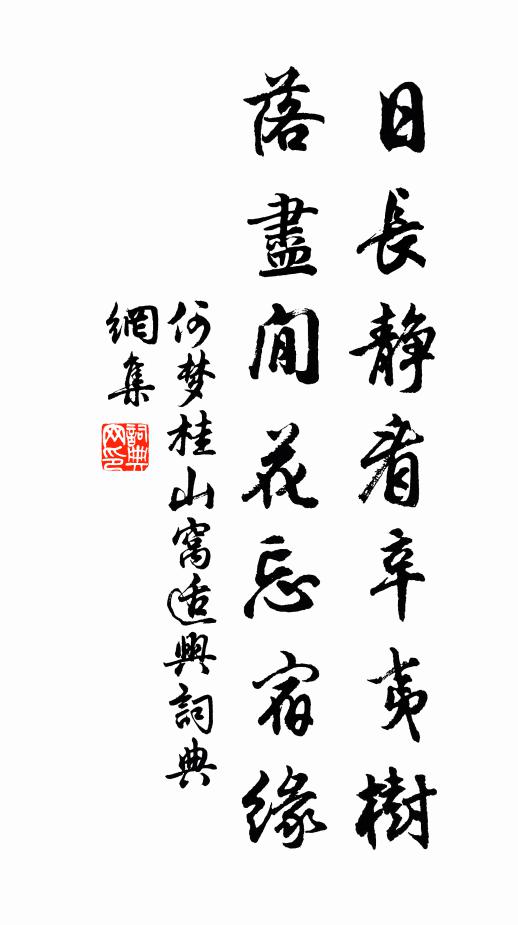 日長静看辛夷樹
落盡閒花忘宿緣
何梦桂山窩适興詞典
網集
詞典
网印